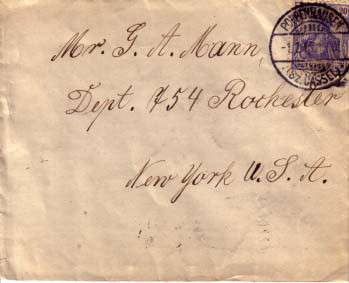 POPPENHAUSEN
Mr. G. A. Mann,
Dept. 754 Rochester
New York U. S. A.